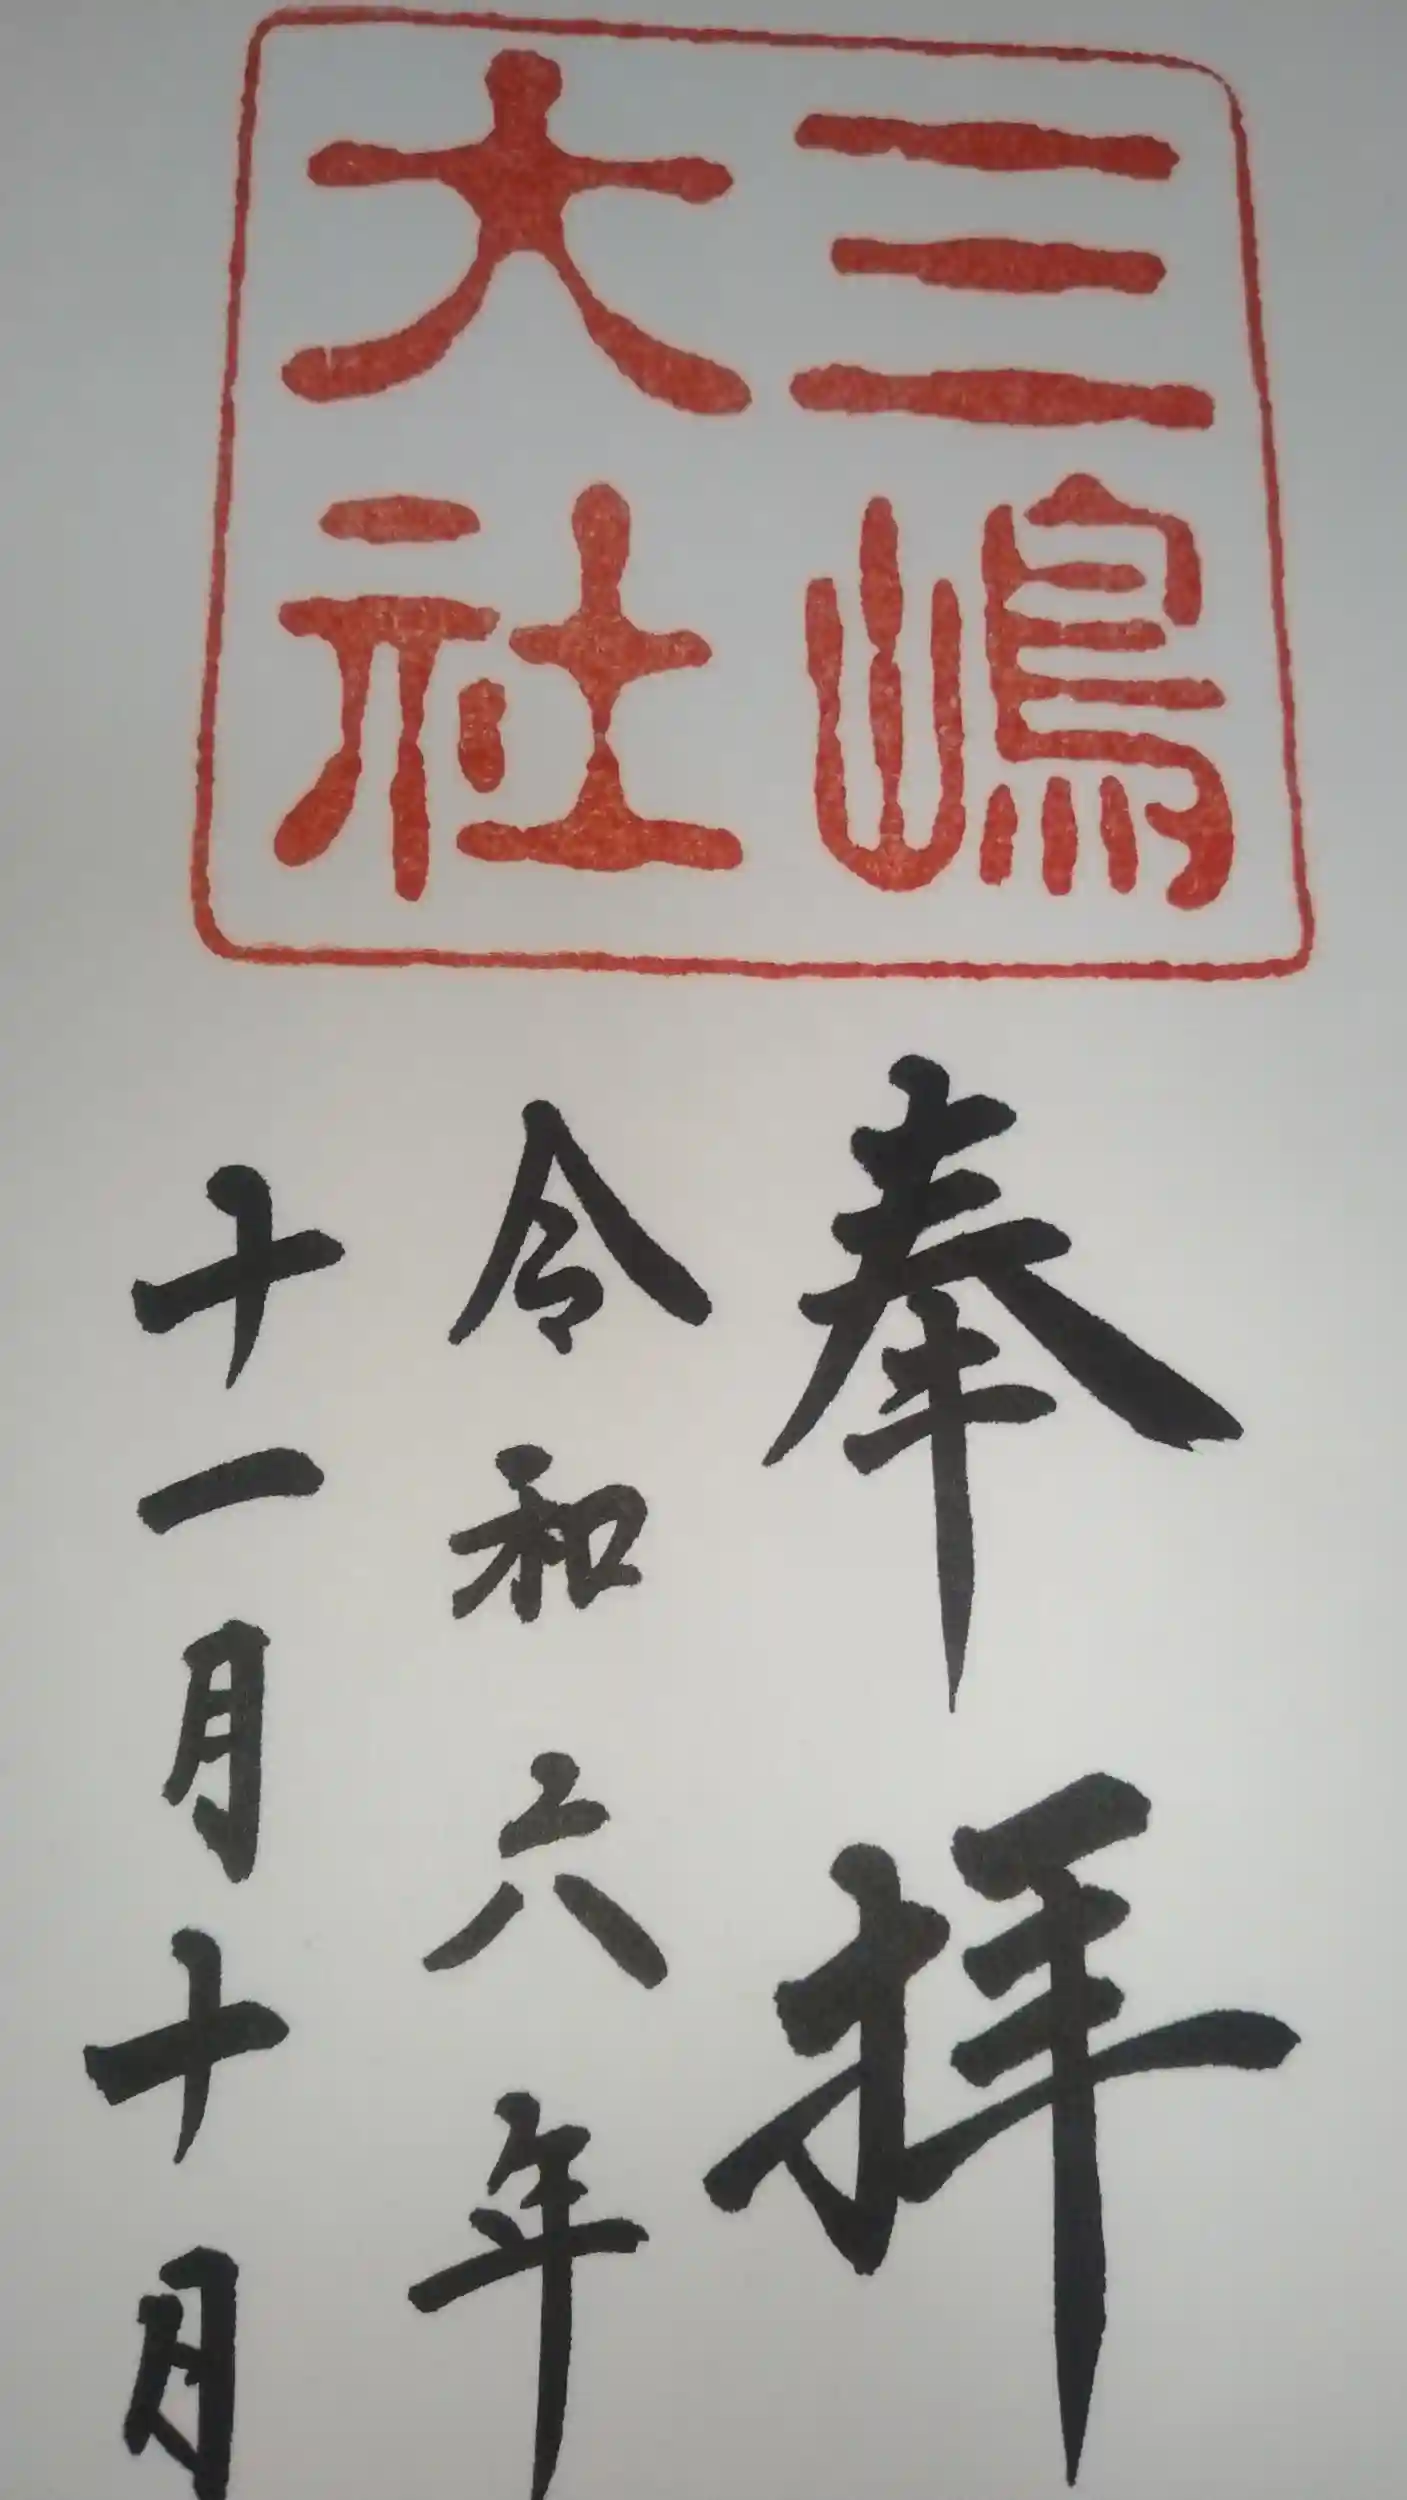 三嶋
大社
奉拝
令和六年
十一月十日